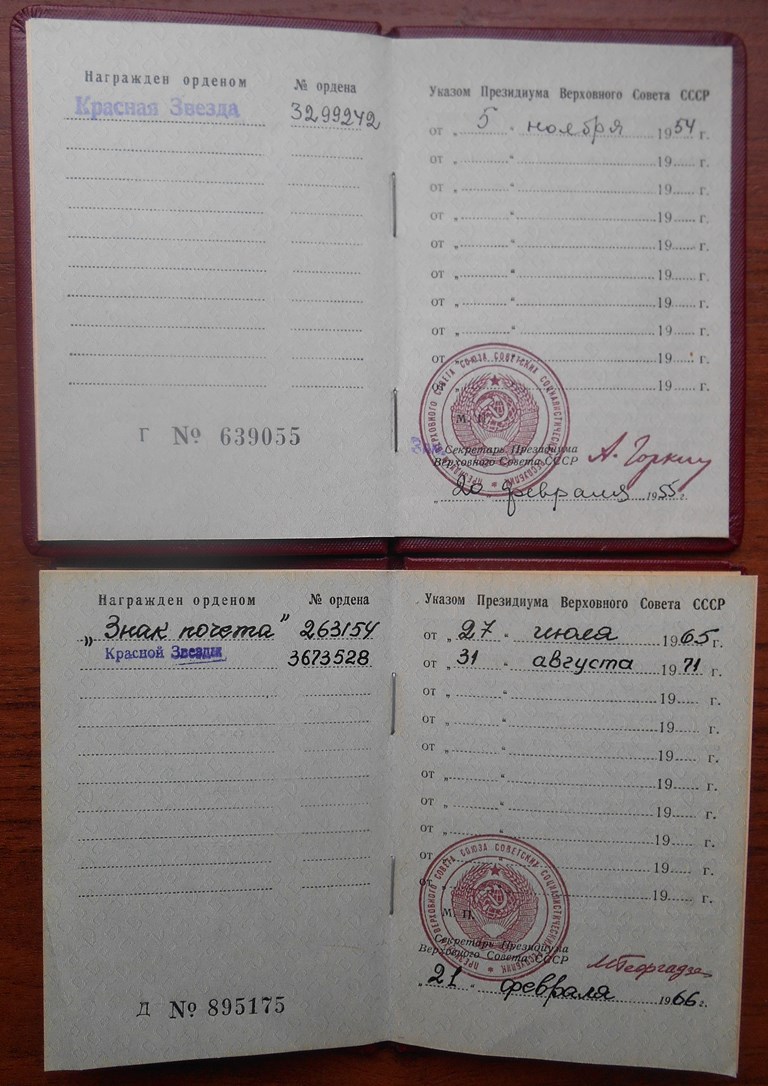 Награжден орденом № ордена
Красная Звезда 3299242
Г № 639055
Указом Президиума Верховного Совета СССР
от „ 5 “ ноября 1954 г.
от „ “ 19 г.
от „ “ 19 г.
от „ “ 19 г.
от „ “ 19 г.
от „ “ 19 г.
от „ “ 19 г.
от „ “ 19 г.
от „ “ 19 г.
от 19 г.
М. П.
Секретарь Президиума
Верховного Совета СССР А. Горкин
„ 20 „ февраля 1955 г.
Награжден орденом № ордена
„Знак почета" 263154
Красной Звезды 3673528
Д № 895175
Указом Президиума Верховного Совета СССР
от „ 27 “ июля 1965 г.
от „ 31 “ августа 1971 г.
от „ “ 19 г.
от „ “ 19 г.
от „ “ 19 г.
от „ “ 19 г.
от „ “ 19 г.
от „ “ 19 г.
от „ “ 19 г.
от 19 г.
М. П.
Секретарь Президиума
Верховного Совета СССР М Георгадзе
„ 21 “ февраля 1966 г.